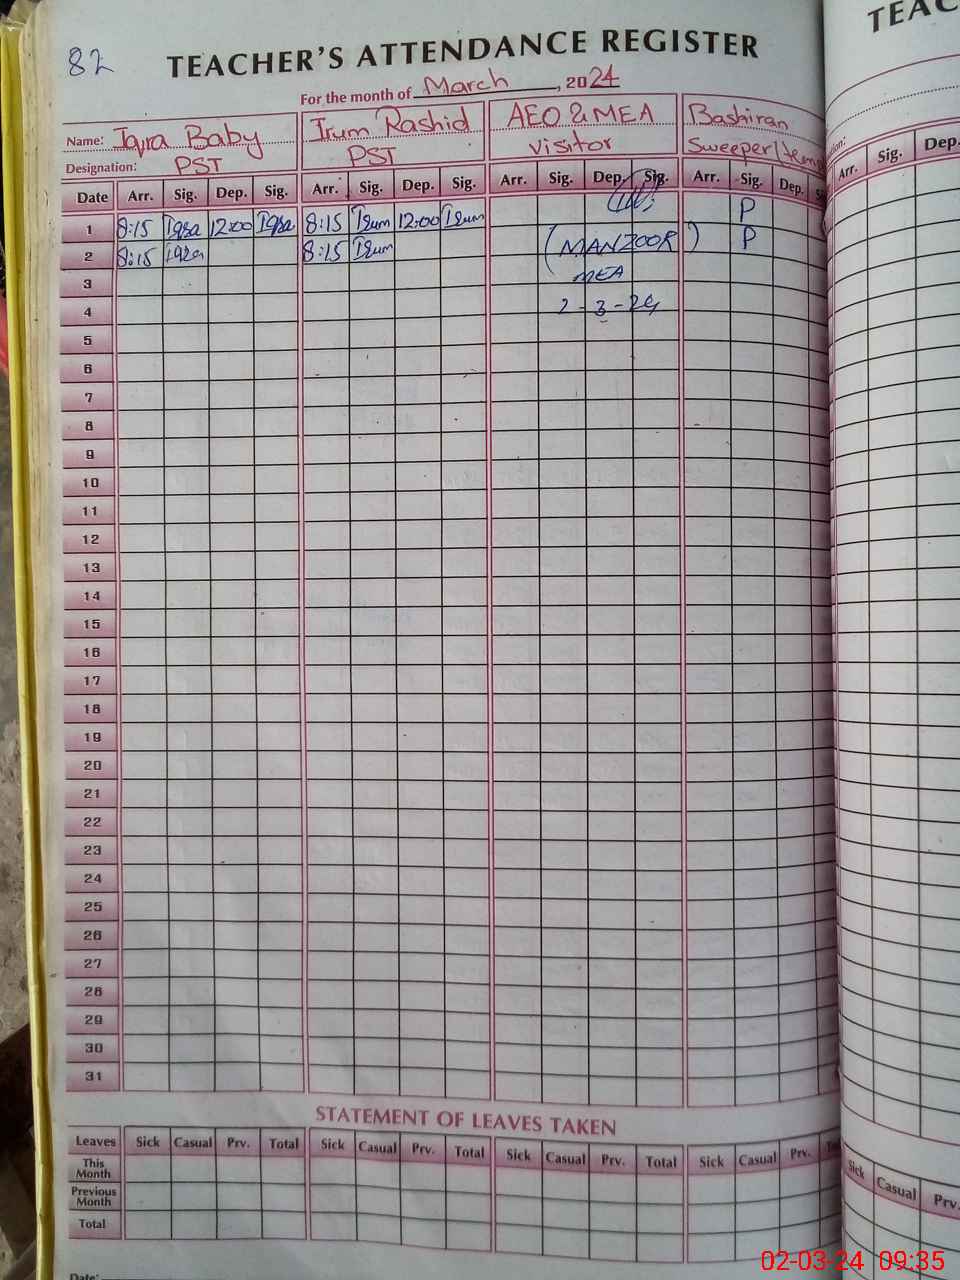 82
TEACHER'S ATTENDANCE REGISTER
For the month of March, 2024
Name: Iqra Baby Irum Rashid AEO & MEA Bashiran
Designation: PST PST visitor Sweeper
Date Arr. Sig. Dep. Sig. Arr. Sig. Dep. Sig. Arr. Sig. Dep. Sig. Arr. Sig. Dep.
1 8:15 Iqra 12:00 Iqra 8:15 Irum 12:00 Irum P
2 8:15 Iqra 8:15 Irum (MANZOOR) P
3 MEA
4 2-3-24
5
6
7
8
9
10
11
12
13
14
15
16
17
18
19
20
21
22
23
24
25
26
27
28
29
30
31
STATEMENT OF LEAVES TAKEN
Leaves Sick Casual Prv. Total Sick Casual Prv. Total Sick Casual Prv. Total Sick Casual Prv.
This Month
Previous Month
Total
Date:
TEAC
Arr. Sig. Dep.
Sick Casual Prv.
02-03-24 09:35